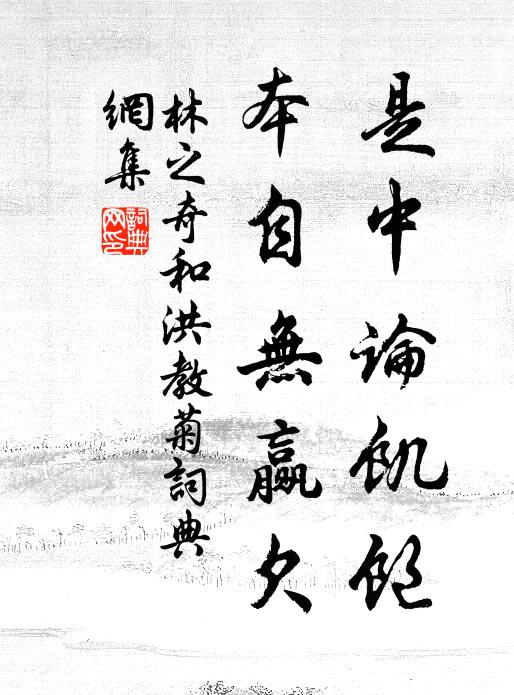 是中論飢飽
本自無贏欠
林之奇和洪教菊詞典
網集
詞典網印